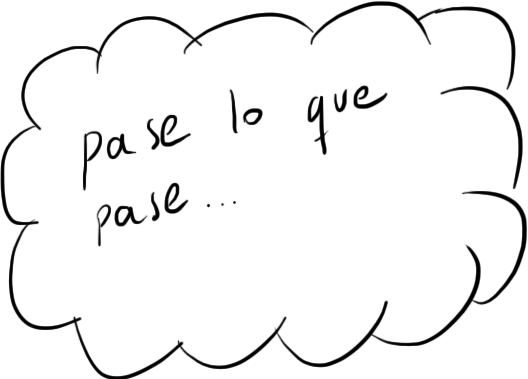 pase lo que
pase...